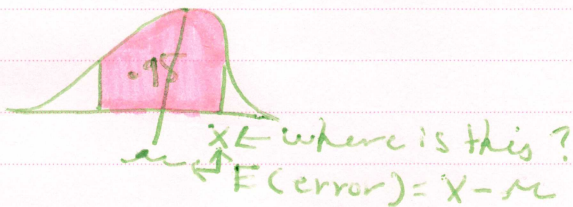 .95
x ← where is this?
μ
E (error) = x - μ